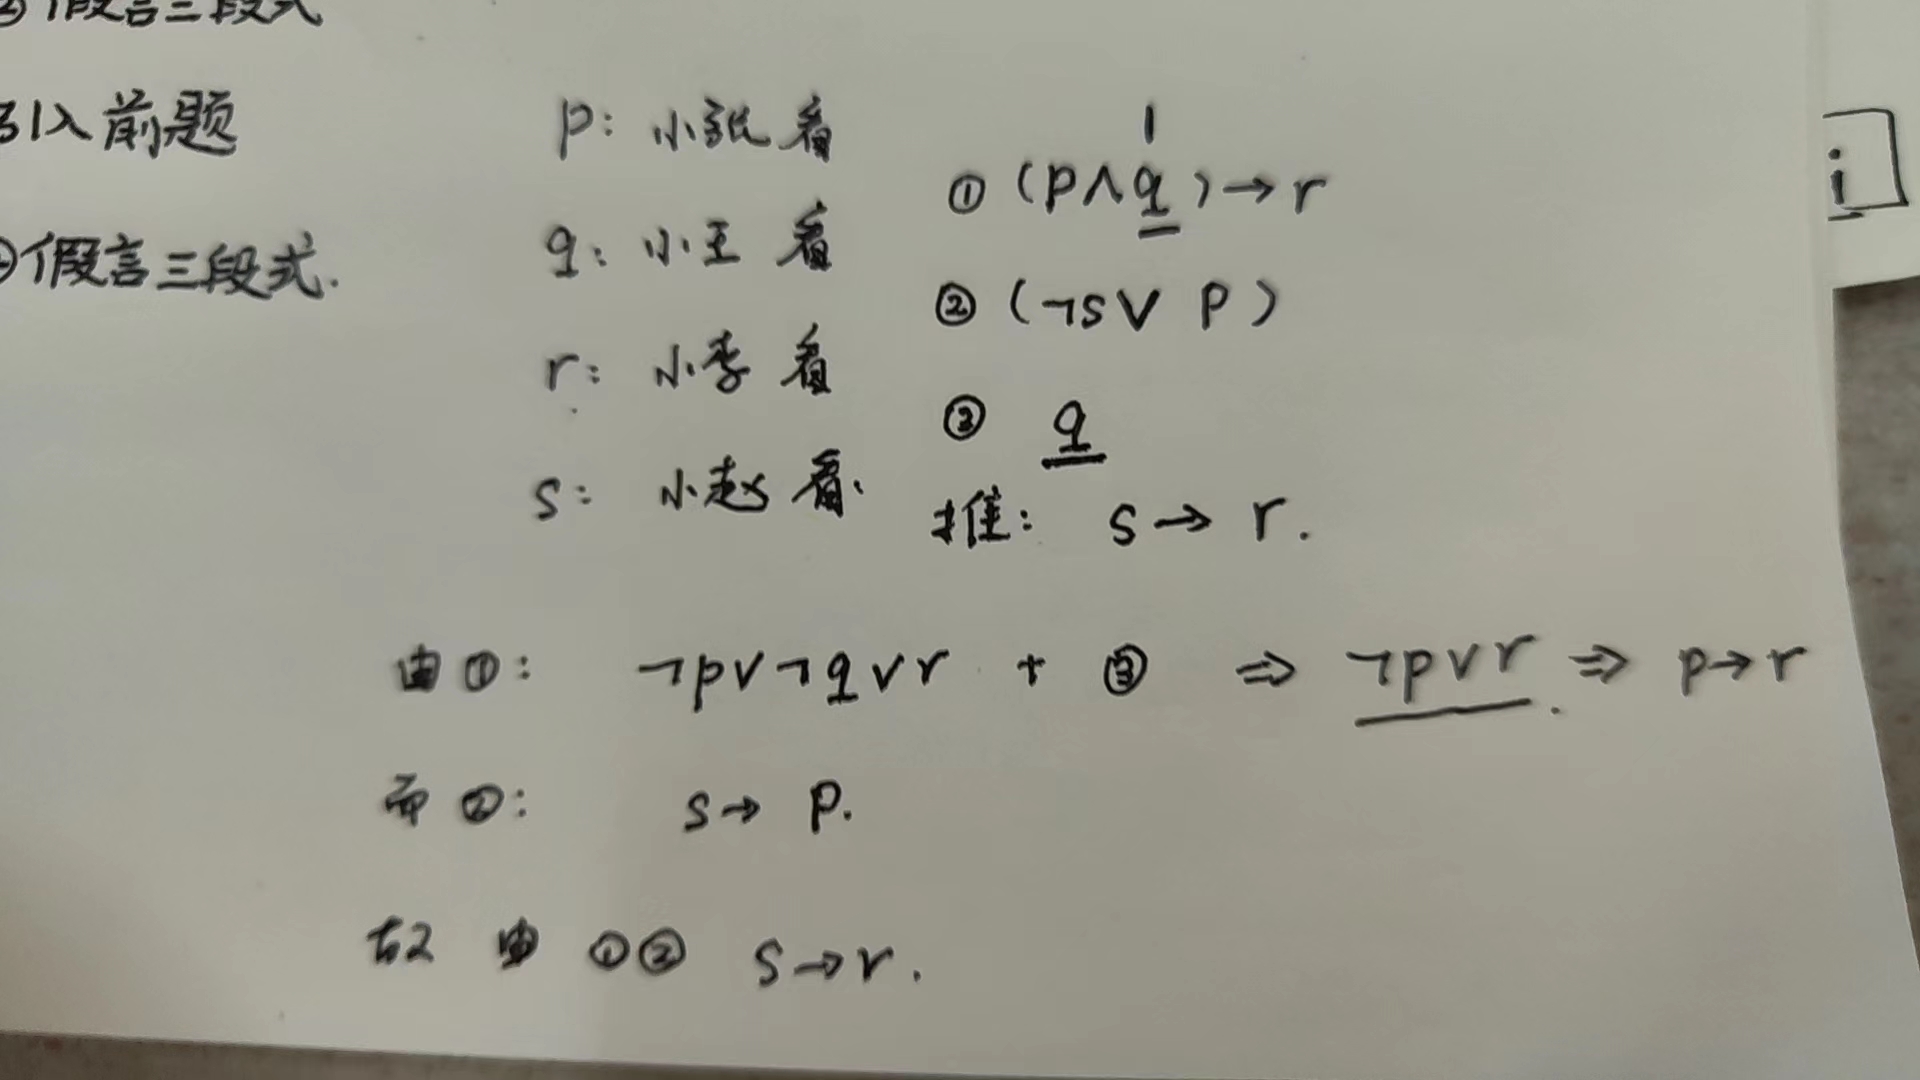 ②假言三段式
引入前题
假言三段式.
p: 小张看
q: 小王看
r: 小李看
s: 小赵看.
1
① (p∧q)→r
② (¬s∨p)
③ q
推: s→r.
i
由①: ¬p∨¬q∨r + ③ ⇒ ¬p∨r. ⇒ p→r
而②: s→p.
故由①② s→r.